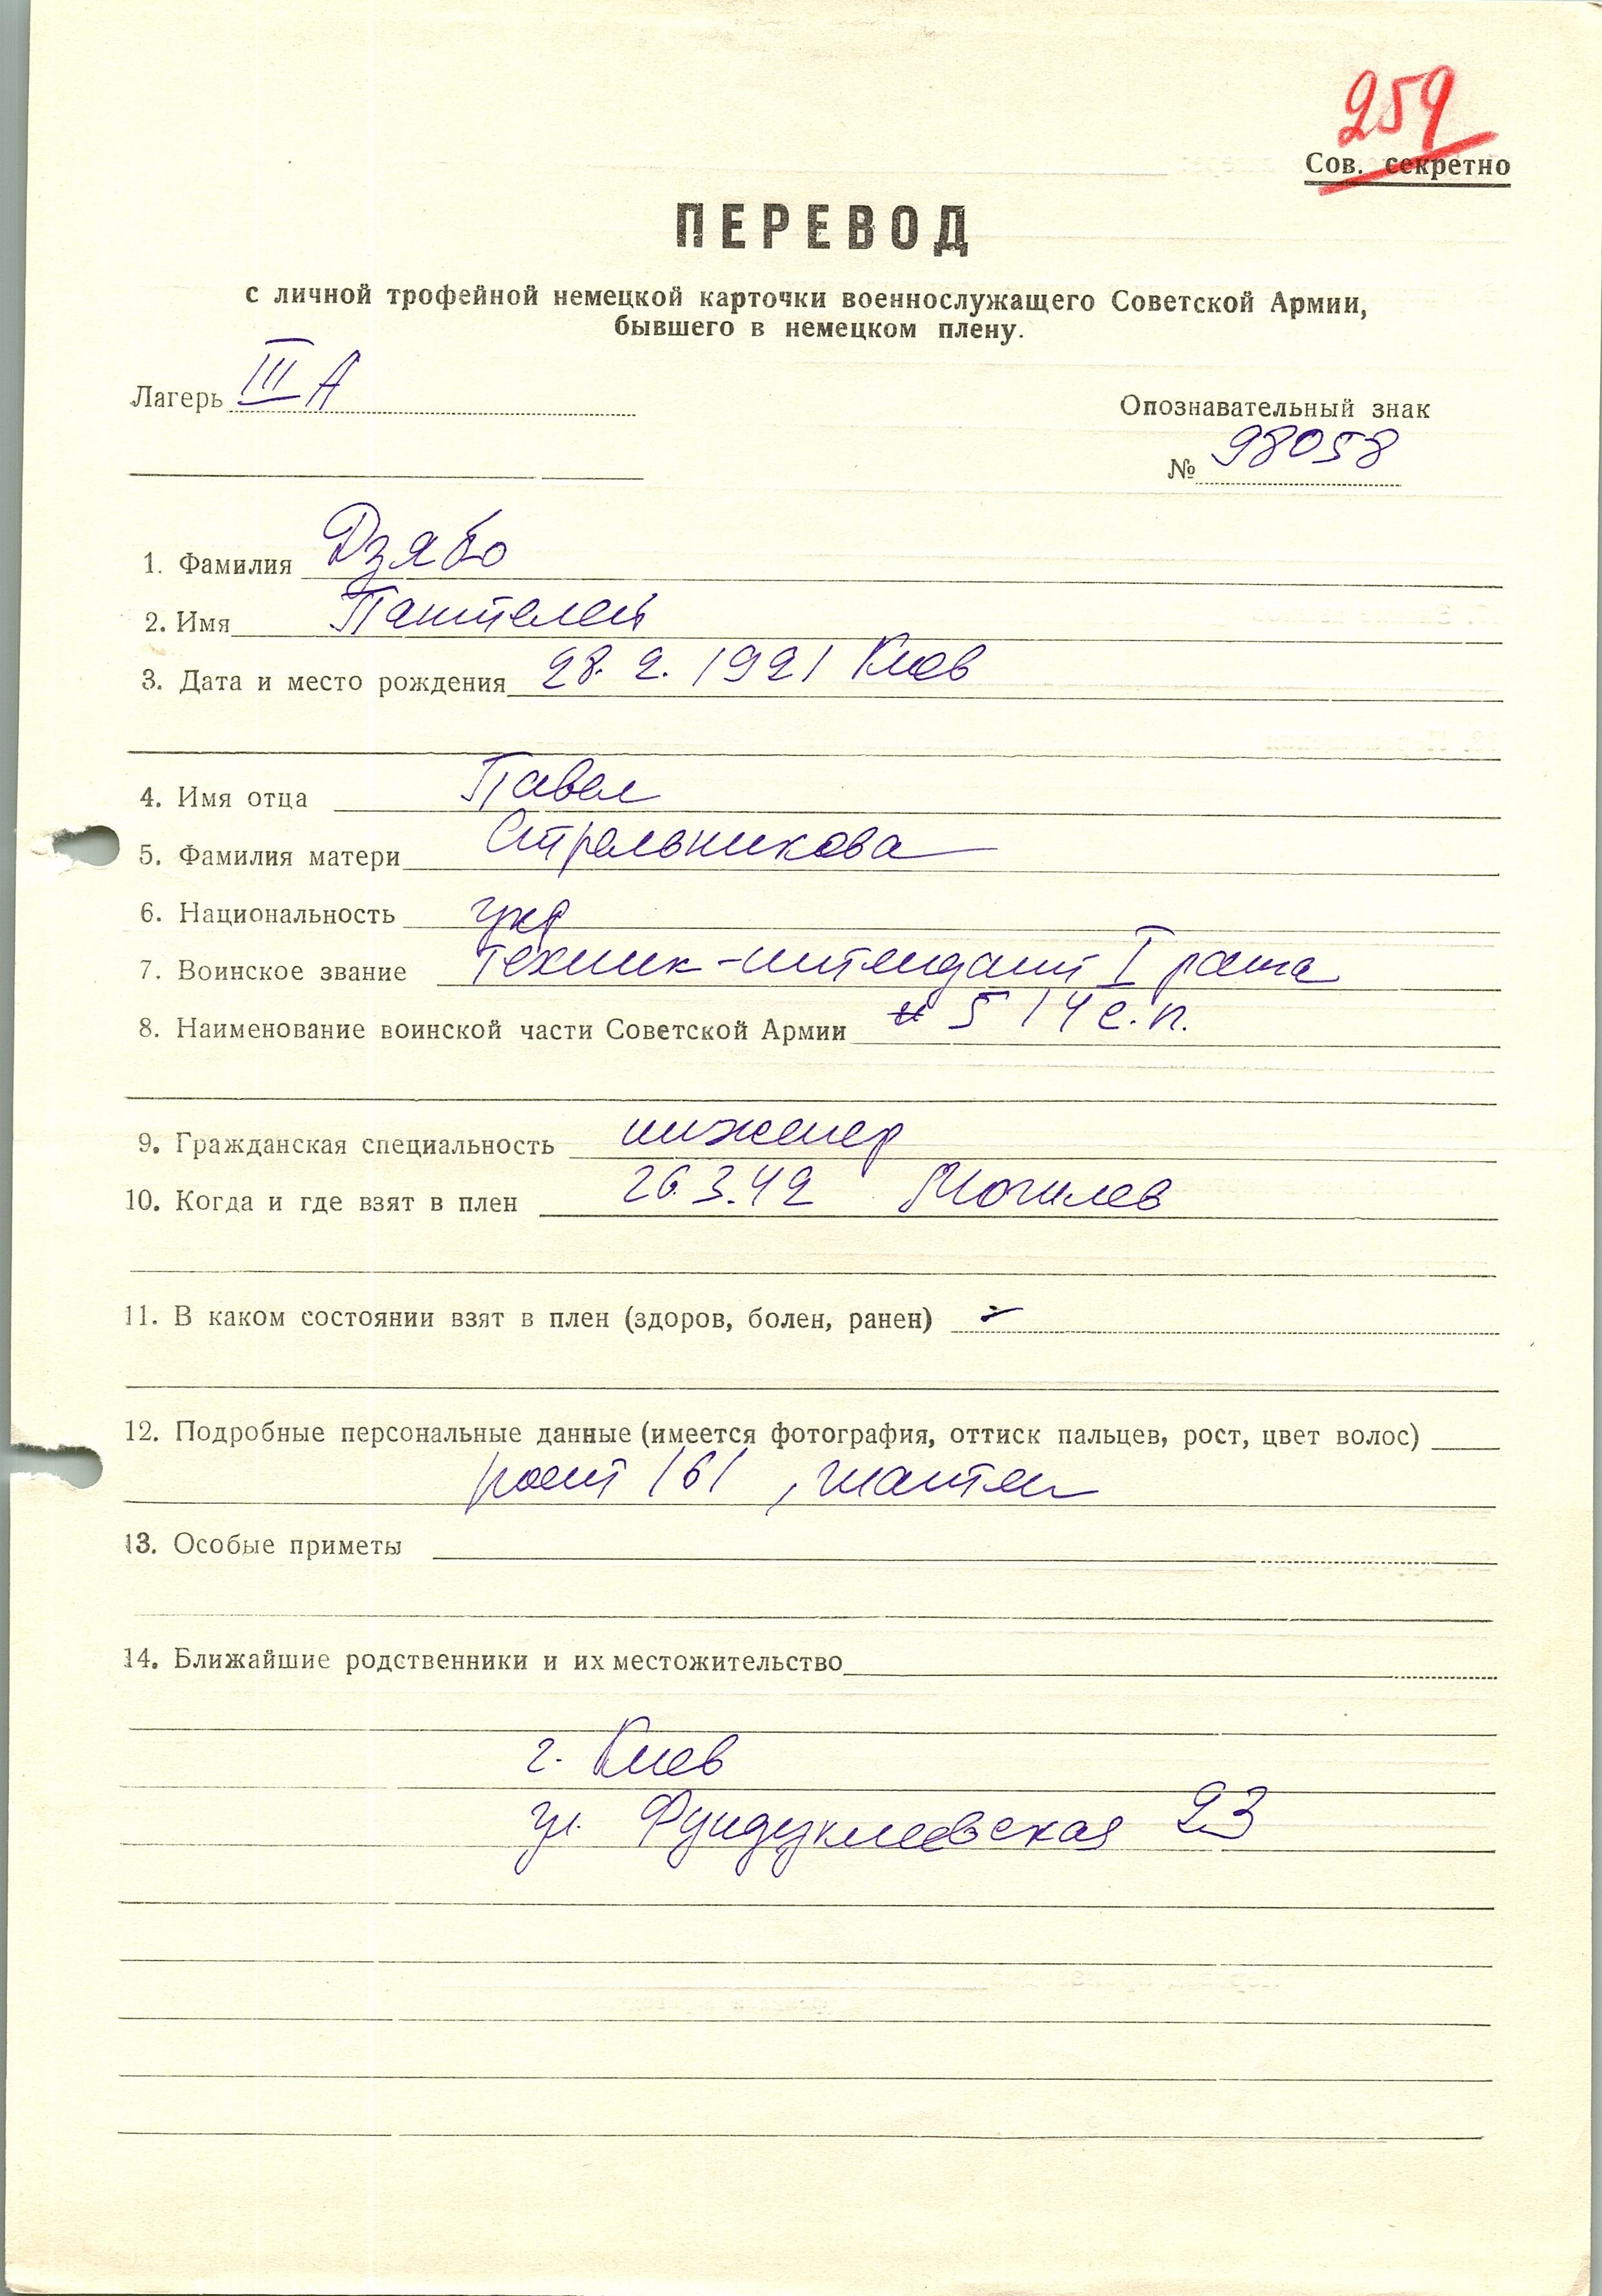 259
Сов. секретно
ПЕРЕВОД
с личной трофейной немецкой карточки военнослужащего Советской Армии,
бывшего в немецком плену.
Лагерь III А
Опознавательный знак
№ 98058
1. Фамилия Дзябо
2. Имя Пантелей
3. Дата и место рождения 28. 2. 1921 Киев
4. Имя отца Павел
5. Фамилия матери Стрельникова
6. Национальность укр
7. Воинское звание техник-интендант I ранга
8. Наименование воинской части Советской Армии 514 с.п.
9. Гражданская специальность инженер
10. Когда и где взят в плен 26.3.42 Могилев
11. В каком состоянии взят в плен (здоров, болен, ранен) -
12. Подробные персональные данные (имеется фотография, оттиск пальцев, рост, цвет волос)
рост 161, шатен
13. Особые приметы
14. Ближайшие родственники и их местожительство
г. Киев
ул. Фундуклеевская 23